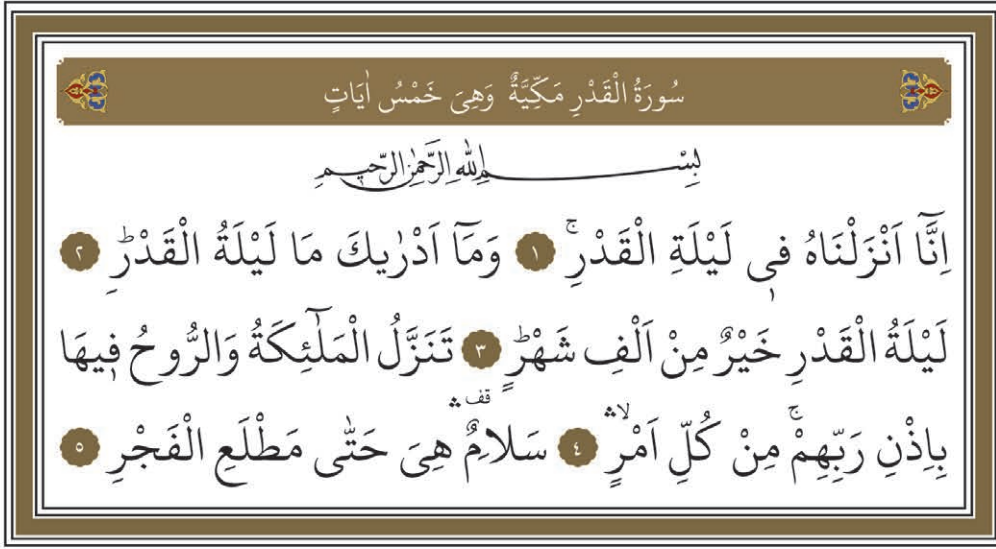 سُورَةُ الْقَدْرِ مَكِّيَّةٌ وَهِىَ خَمْسُ اٰيَاتٍ
بِسْمِ اللّٰهِ الرَّحْمٰنِ الرَّحٖيمِ
اِنَّٓا اَنْزَلْنَاهُ فٖى لَيْلَةِ الْقَدْرِۚ ١ وَمَٓا اَدْرٰيكَ مَا لَيْلَةُ الْقَدْرِؕ ٢
لَيْلَةُ الْقَدْرِ خَيْرٌ مِنْ اَلْفِ شَهْرٍؕ ٣ تَنَزَّلُ الْمَلٰٓئِكَةُ وَالرُّوحُ فٖيهَا
بِاِذْنِ رَبِّهِمْۚ مِنْ كُلِّ اَمْرٍۙۛ ٤ سَلَامٌࣞۛ هِىَ حَتّٰى مَطْلَعِ الْفَجْرِ ٥